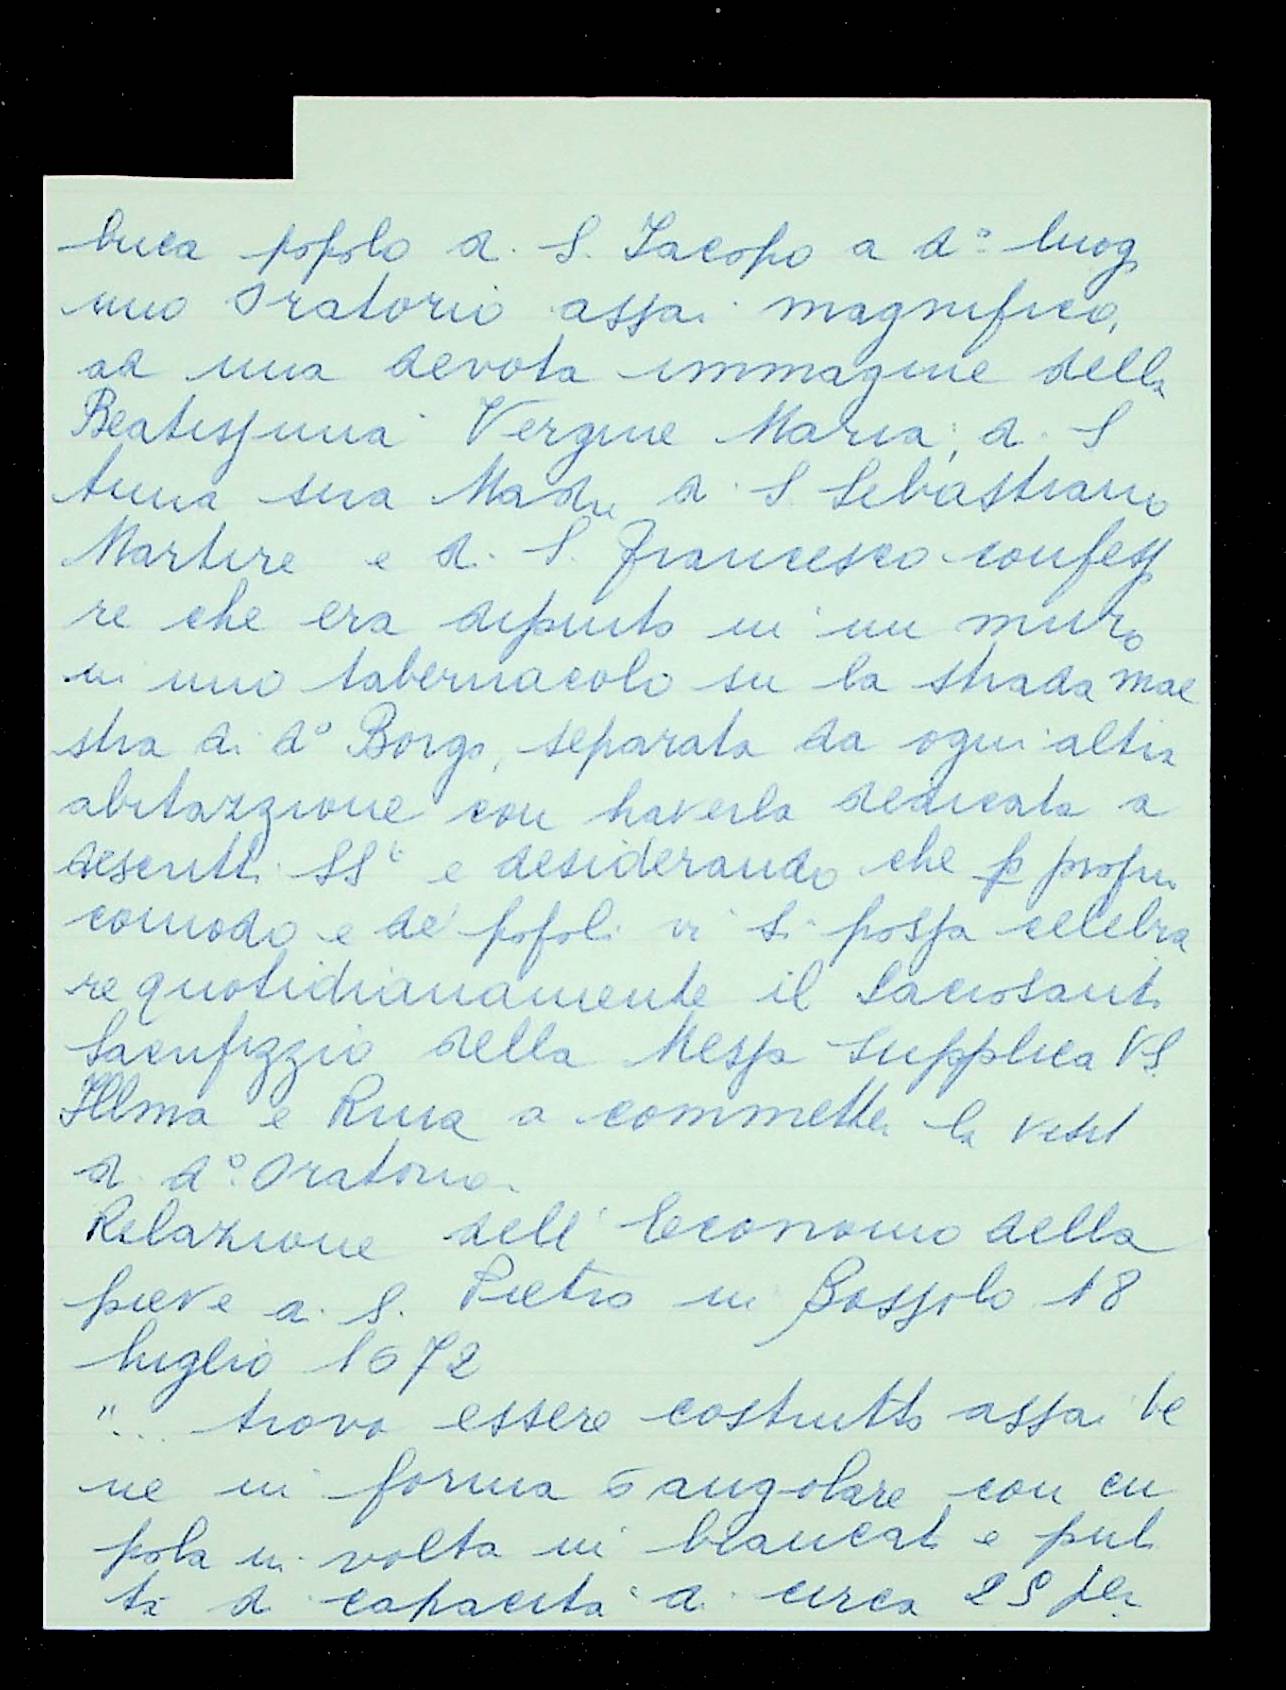 buca popolo di S. Iacopo a d.º luog
uno Oratorio assai magnifico,
ad una devota immagine della
Beatissima Vergine Maria, di S
Anna sua Madre di S Sebastiano
Martire e di S. Francesco confess
re che era dipinto in un muro
in uno tabernacolo su la strada mae
stra di dº Borgo, separata da ogni altra
abitazzione con haverla dedicata a
descritti SSⁱ e desiderando che p propri
comodo e de' popoli vi si possa celebra
re quotidianamente il Sacrosanto
Sacrifizzio della Messa supplica VS.
Illma e Rma a commetter la visit
di d.º Oratorio.
Relazione dell' Economo della
pieve a S. Pietro in Bossolo 18
luglio 1672
"... trovo essere costrutto assai be
ne in forma 6 angolare con cu
pola in volta in biancat e puli
ta di capacità di circa 25 per